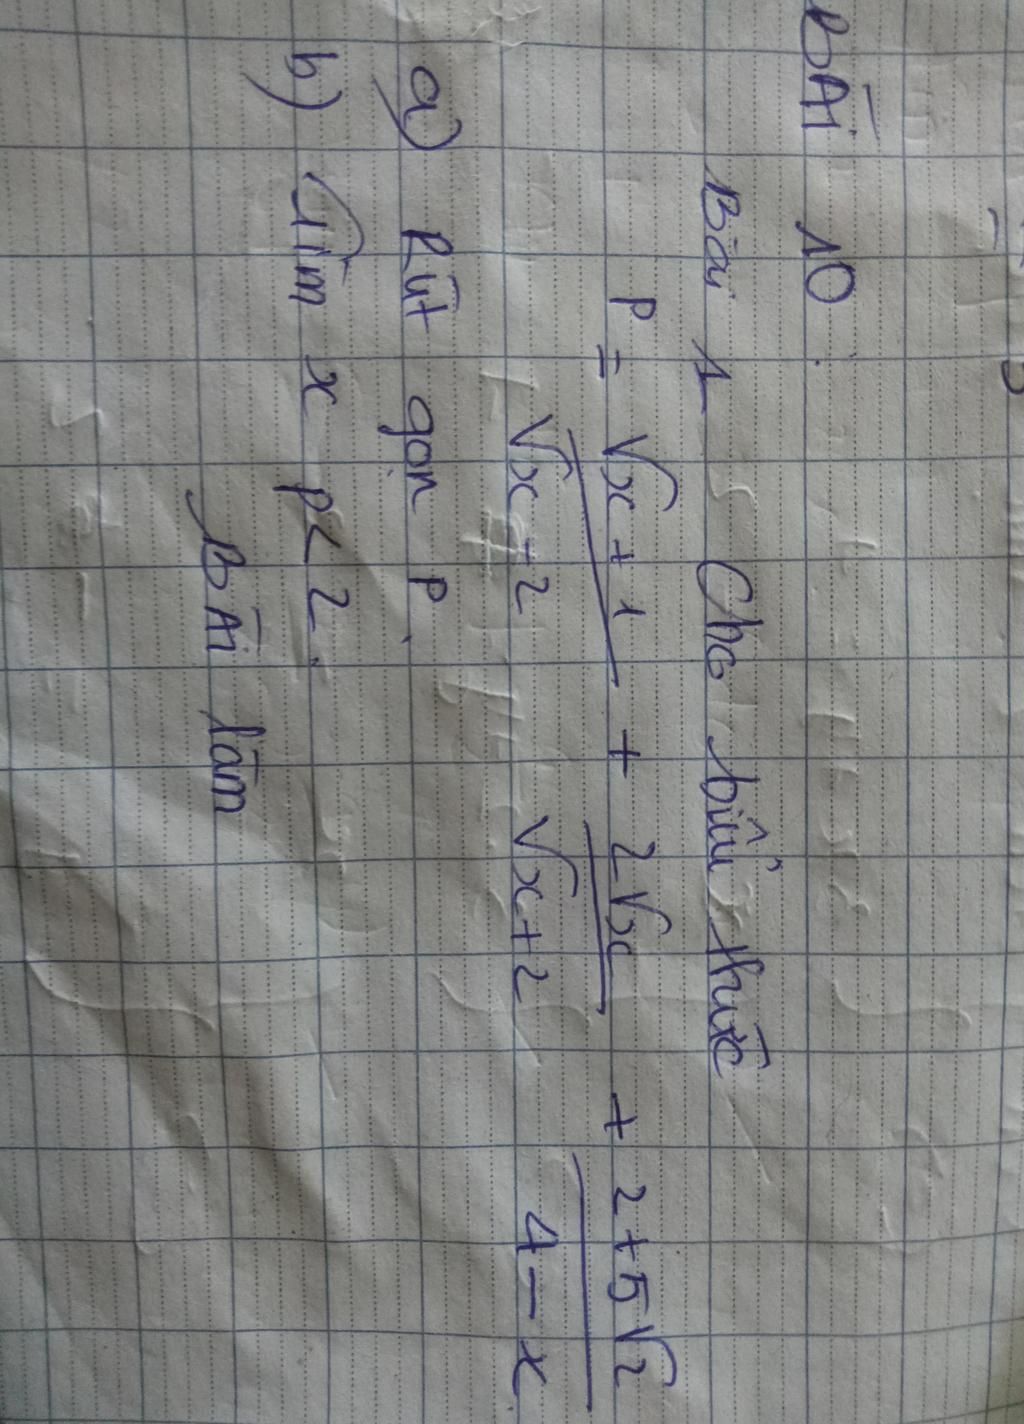 BÀi 10.
Bài 1 Cho biểu thức
P = √x + 1 / √x - 2 + 2√x / √x + 2 + 2 + 5√2 / 4 - x
a) Rút gọn P.
b) Tìm x P < 2.
BÀi làm